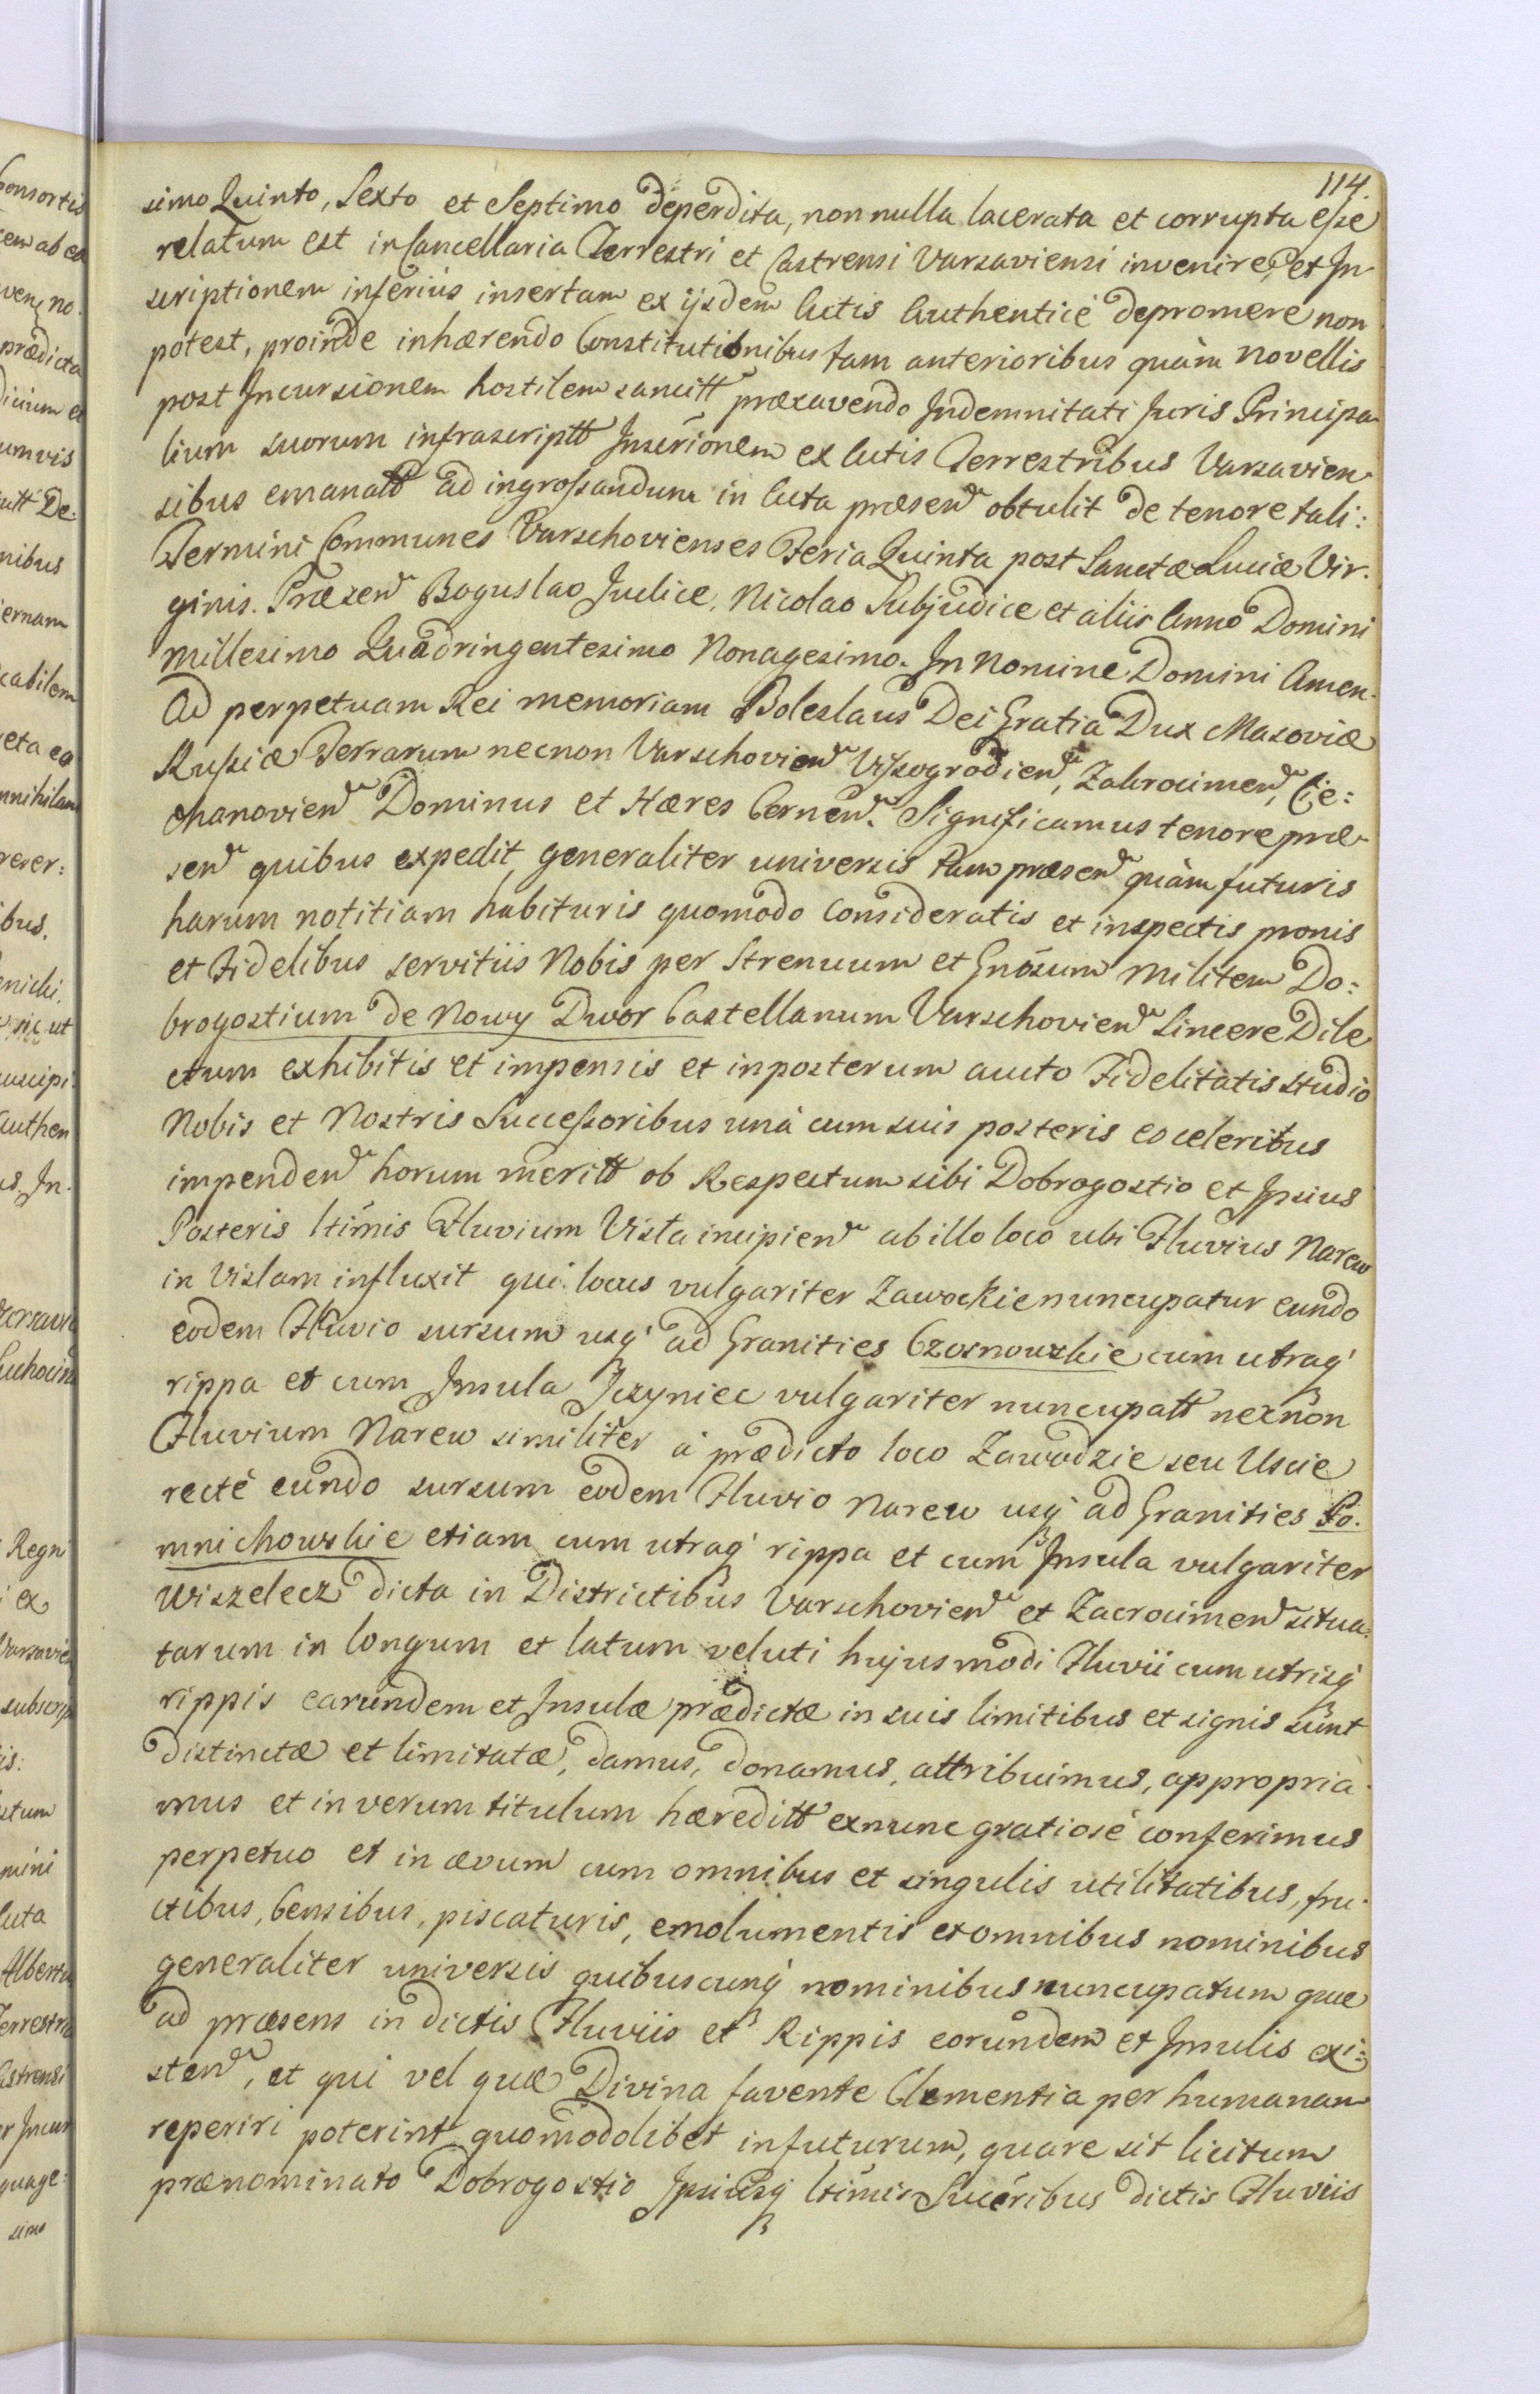 114.
simo Quinto, Sexto et Septimo deperdita, non nulla lacerata et corrupta eſse
relatum est in Cancellaria Terrestri et Castrensi Varsaviensi invenire, et In
scriptionem inferius insertam ex ijsdem Actis Authenticè depromere non
potest, proinde inhærendo Constitutionibus tam anterioribus quàm novellis
post Incursionem hostilem sancitt præcavendo Indemnitati Juris Principa
lium suorum infrascriptt Inscrionem ex Actis Terrestribus Varsavien
sibus emanatt ad ingroſsandum in Acta præsen obtulit de tenore tali:
Termini Communes Varschovienses Feria Quinta post Sanctæ Luciæ Vir.
ginis. Præsen Boguslao Judice, Nicolao Subjudice et aliis Anno Domini
Millesimo Quadringentesimo Nonagesimo. In Nomine Domini Amen.
Ad perpetuam Rei memoriam Boleslaus Dei Gratia Dux Masoviæ
Ruſsiæ Terrarum necnon Varschovien Viſsogrodien, Zakrocimen, Cie:
chanovien Dominus et Hæres Cernen. Significamus tenore præ
sen quibus expedit generaliter universis tam præsen quàm futuris
harum notitiam habituris quomodo Consideratis et inspectis pronis
et Fidelibus servitiis Nobis per Strenuum et Gnosum Militem Do:
brogostium de Nowy Dwor Castellanum Varschovien Sincere Dile
ctum exhibitis et impensis et inposterum aucto Fidelitatis studio
Nobis et Nostris Succeſsoribus unà cum suis posteris eo celeribus
impenden horum meritt ob Respectum sibi Dobrogostio et Ipsius
Posteris ltimis Fluvium Visla incipien ab illo loco ubi Fluvius Narew
in Vislam influxit qui locus vulgariter Zawockie nuncupatur eundo
eodem Fluvio sursum usq' ad Granities Czosnowskie cum utraq'
rippa et cum Insula Jczyniec vulgariter nuncupatt necnon
Fluvium Narew similiter à prædicto loco Zawodzie seu Uscie
rectè eundo sursum eodem Fluvio Narew usq' ad Granities Po.
mnichowskie etiam cum utraq' rippa et cum Insula vulgariter
Wiszelecz dicta in Districtibus Varschovien et Zacrocimen situa.
tarum in longum et latum veluti hujusmodi Fluvii cum utrisq'
rippis earundem et Insulæ prædictæ in suis limitibus et signis sunt
distinctæ et limitatæ, damus, donamus, attribuimus, appropria
mus et in verum titulum hæreditt exnunc gratiosè conferimus
perpetuo et in ævum cum omnibus et singulis utilitatibus, fru.
ctibus, Censibus, piscaturis, emolumentis et omnibus nominibus
generaliter universis quibuscunq' nominibus nuncupatum quæ
ad præsens in dictis Fluviis et Rippis eorundem et Insulis exi:
sten, et qui vel quæ Divina favente Clementia per humanam
reperiri poterint quomodolibet in futurum, quare sit licitum
prænominato Dobrogostio Ipsiusq' ltimis Sucéribus dictis Fluviis